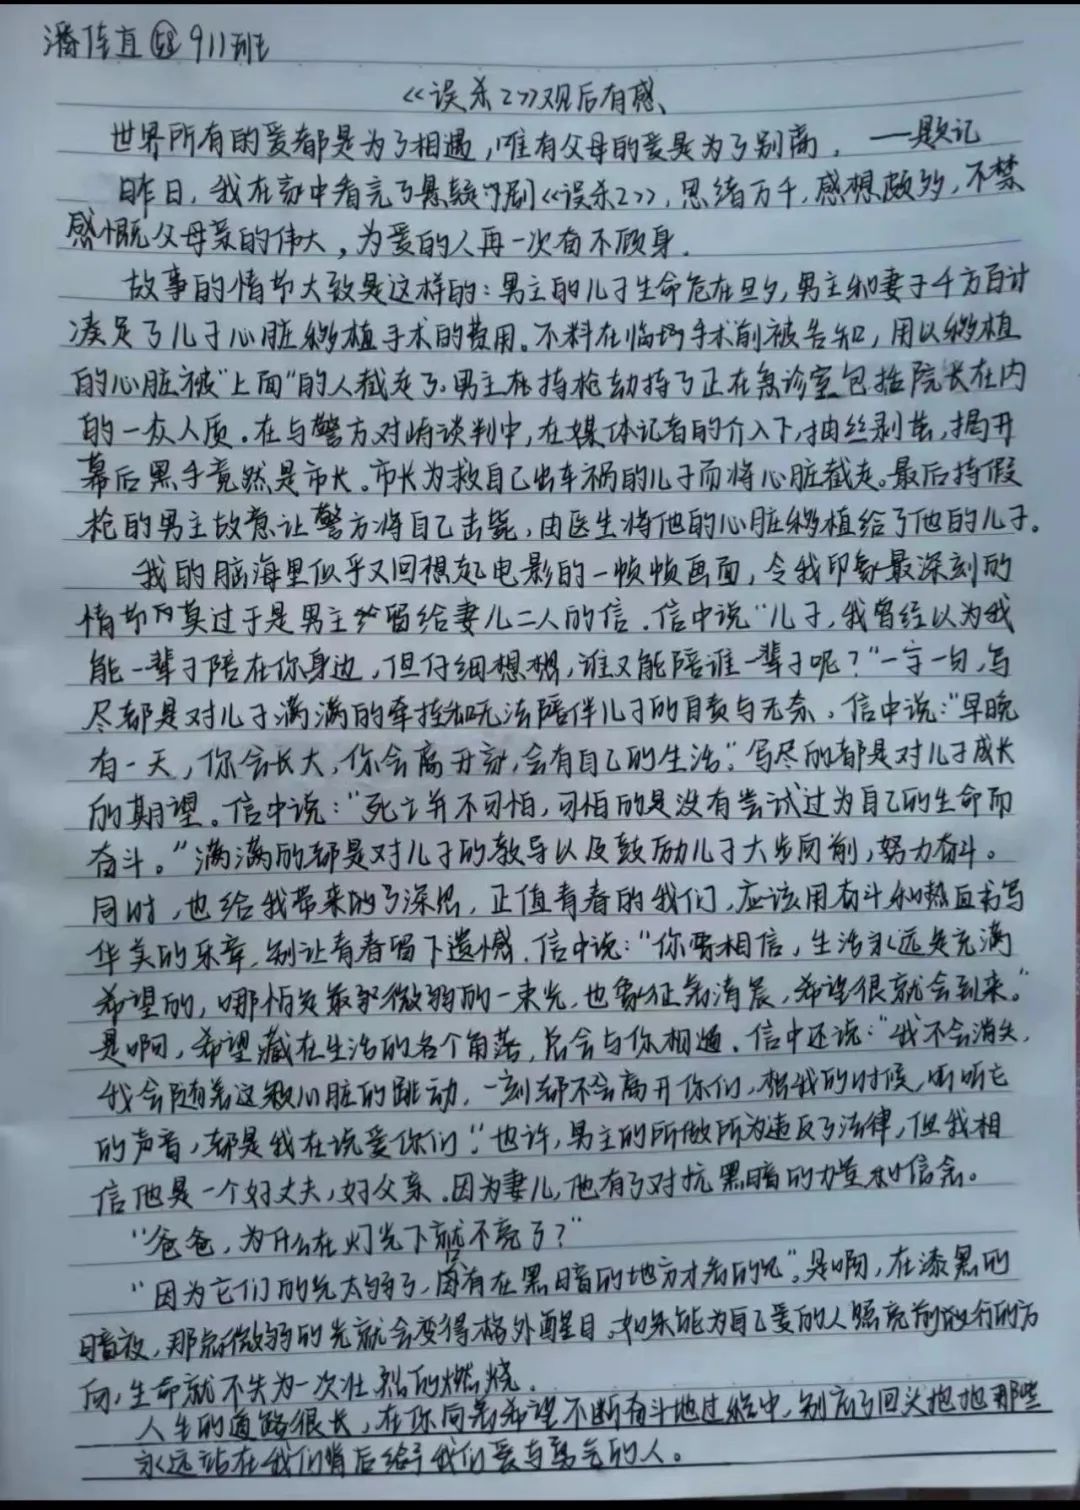 潘佳直 58 911班
《误杀2》观后有感
世界所有的爱都是为了相遇，唯有父母的爱是为了别离。 ——题记
昨日，我在家中看完了悬疑剧《误杀2》，思绪万千，感想颇多，不禁
感慨父母亲的伟大，为爱的人再一次奋不顾身。
故事的情节大致是这样的：男主的儿子生命危在旦夕，男主和妻子千方百计
凑足了儿子心脏移植手术的费用。不料在临场手术前被告知，用以移植
的心脏被"上面"的人截走了。男主在持枪劫持了正在急诊室包括院长在内
的一众人质。在与警方对峙谈判中，在媒体记者的介入下，抽丝剥茧，揭开
幕后黑手竟然是市长。市长为救自己出车祸的儿子而将心脏截走。最后持假
枪的男主故意让警方将自己击毙，由医生将他的心脏移植给了他的儿子。
我的脑海里似乎又回想起电影的一帧帧画面，令我印象最深刻的
情节莫过于是男主留给妻儿二人的信。信中说"儿子，我曾经以为我
能一辈子陪在你身边，但仔细想想，谁又能陪谁一辈子呢？"一字一句，写
尽都是对儿子满满的牵挂和无法陪伴儿子的自责与无奈。信中说："早晚
有一天，你会长大，你会离开家，会有自己的生活"。写尽的都是对儿子成长
的期望。信中说："死亡并不可怕，可怕的是没有尝试过为自己的生命而
奋斗。"满满的都是对儿子的教导以及鼓励儿子大步向前，努力奋斗。
同时，也给我带来的了深思，正值青春的我们，应该用奋斗和热血书写
华美的乐章，别让青春留下遗憾。信中说："你要相信，生活永远是充满
希望的，哪怕是最微弱的一束光，也象征着清晨，希望很就会到来。"
是啊，希望藏在生活的各个角落，总会与你相遇。信中还说："我不会消失，
我会随着这颗心脏的跳动，一刻都不会离开你们，想我的时候，听听它
的声音，都是我在说爱你们"。也许，男主的所做所为违反了法律，但我相
信他是一个好丈夫，好父亲。因为妻儿，他有了对抗黑暗的力量和信念。
"爸爸，为什么在灯光下就不亮了？"
"因为它们的光太弱了，只有在黑暗的地方才看的见"。是啊，在漆黑的
暗夜，那点微弱的光就会变得格外醒目。如果能为自己爱的人照亮前行的方
向，生命就不失为一次壮烈的燃烧。
人生的道路很长，在你向着希望不断奋斗地过程中，别忘了回头抱抱那些
永远站在我们背后给予我们爱与勇气的人。